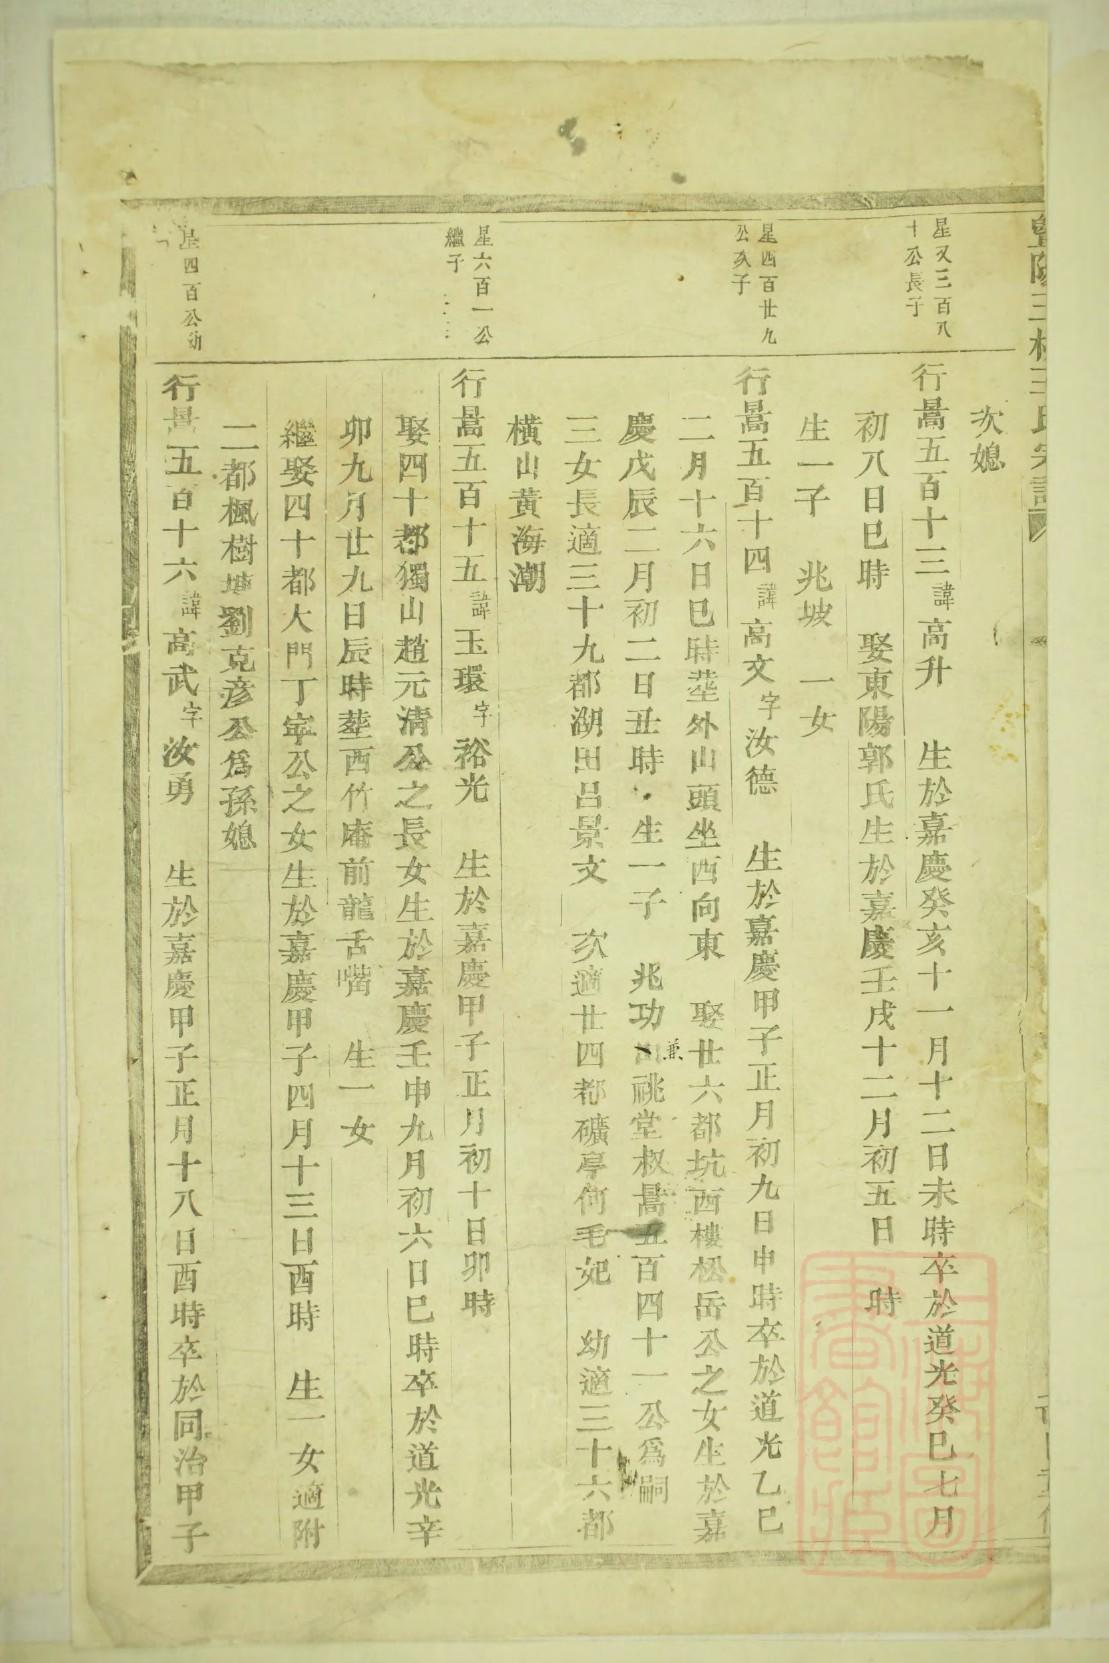 次媳
星又三百八
十公長子
行暠五百十三諱高升 生於嘉慶癸亥十一月十二日未時卒於道光癸巳七月
初八日巳時 娶東陽郭氏生於嘉慶壬戌十二月初五日 時
生一子 兆坡 一女
星四百廿九
公次子
行暠五百十四諱高文字汝德 生於嘉慶甲子正月初九日申時卒於道光乙巳
二月十六日巳時塟外山頭坐西向東 娶廿六都坑西樓松岳公之女生於嘉
慶戊辰二月初二日丑時 生一子 兆功 兼祧堂叔暠五百四十一公爲嗣
三女長適三十九都湖田呂景文 次適廿四都礦亭何毛妃 幼適三十六都
橫山黃海潮
星六百一公
繼子
行暠五百十五諱玉環字裕光 生於嘉慶甲子正月初十日卯時
娶四十都獨山趙元清公之長女生於嘉慶壬申九月初六日巳時卒於道光辛
卯九月廿九日辰時塟西竹庵前龍舌嘴 生一女
繼娶四十都大門丁寧公之女生於嘉慶甲子四月十三日酉時 生一女適附
二都楓樹塘劉克彥公爲孫媳
星四百公幼
行暠五百十六諱高武字汝勇 生於嘉慶甲子正月十八日酉時卒於同治甲子